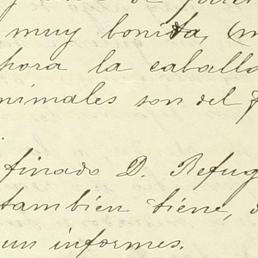 muy bonita, (m
hora la caballa
nimales son del f
finado D. Refug
tambien tiene,
un informes.